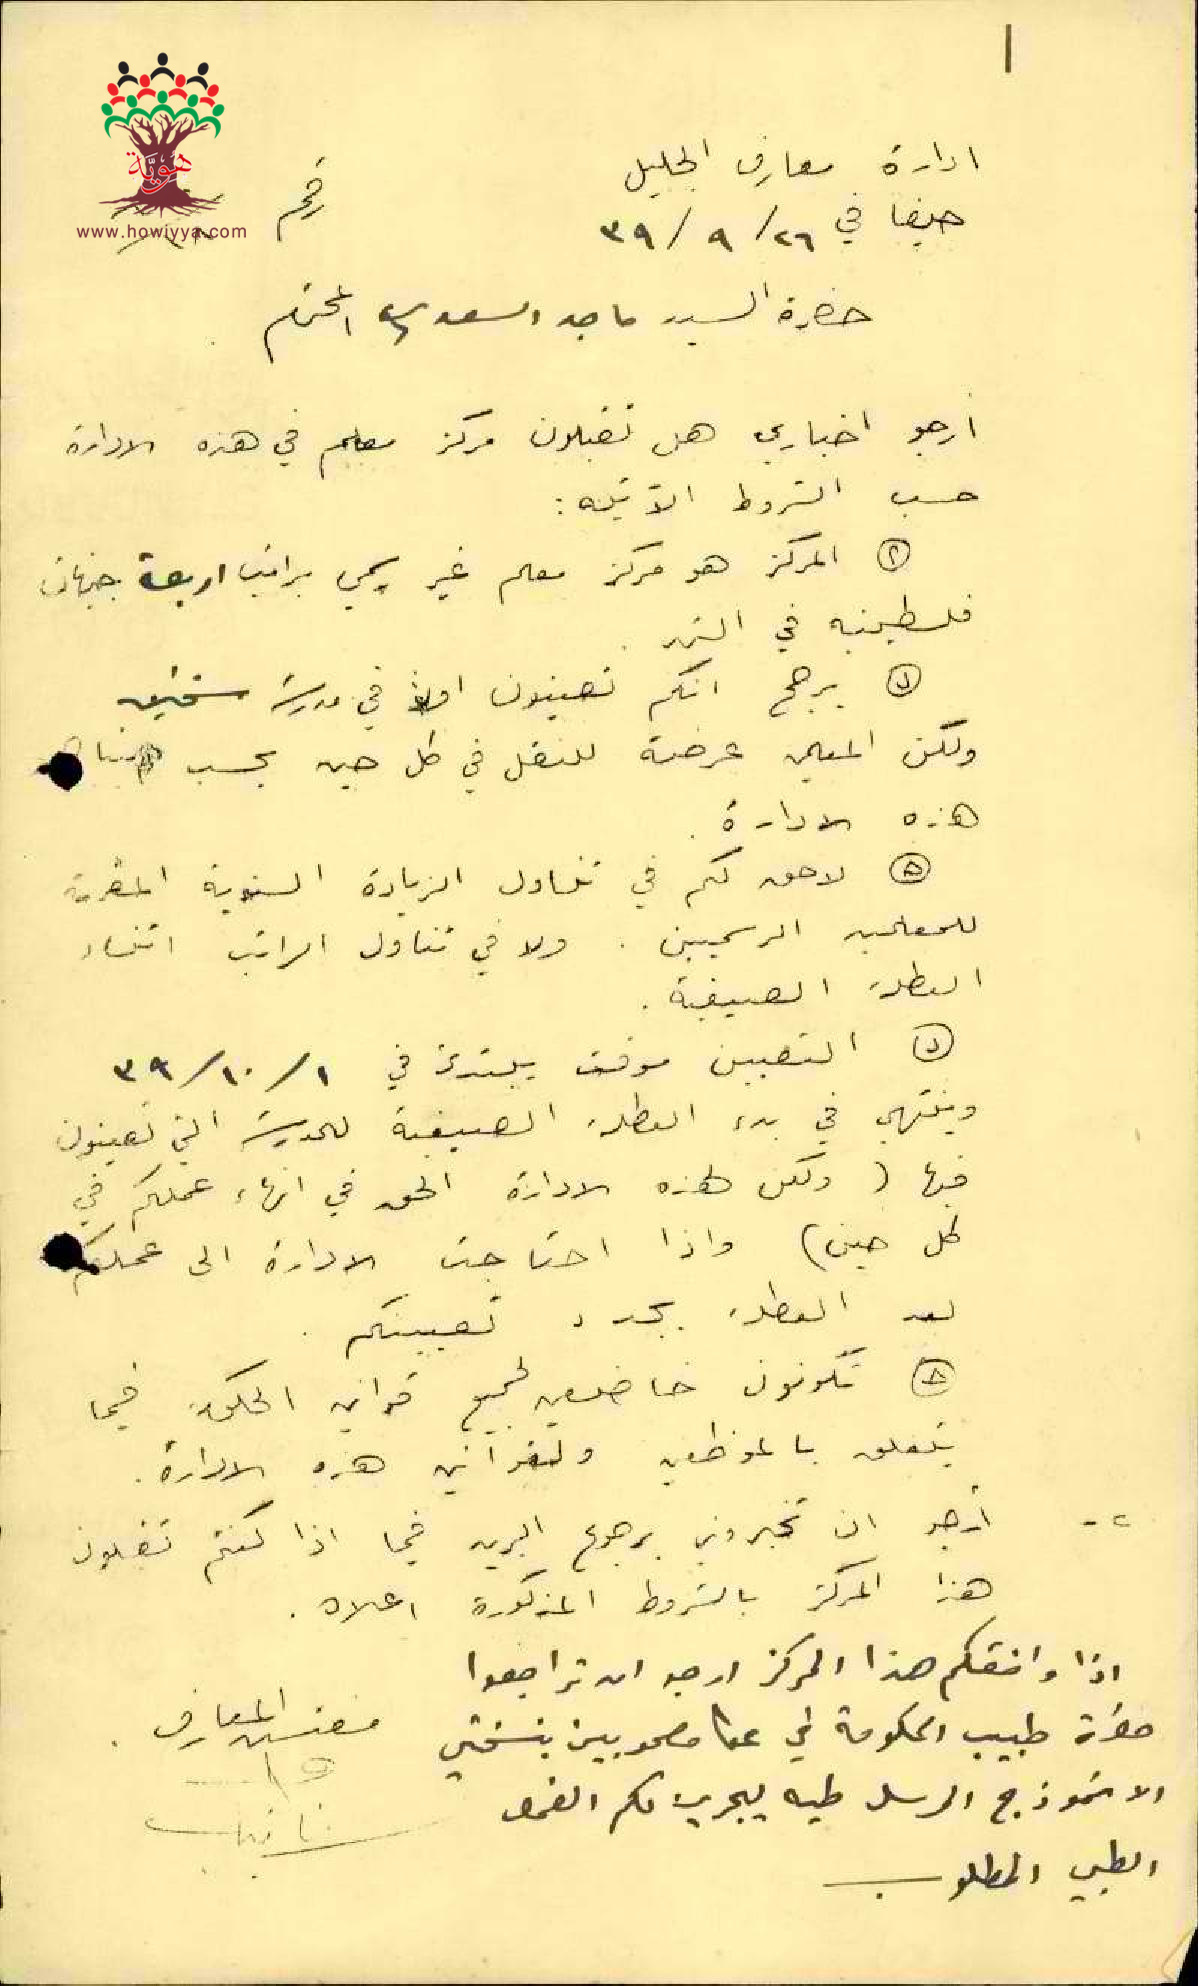 هوية
www.howiyya.com
ادارة معارف الجليل
رقم
حيفا في ٢٦/ ٩ /٣٩
حضرة السيد ماجد السعدي المحترم
أرجو اخباري هل تقبلون مركز معلم في هذه الادارة
حسب الشروط الآتيه:
المركز هو مركز معلم غير رسمي براتب اربعة جنيهات
فلسطينيه في الشهر.
يرجح انكم تعينون اولاً في مدرسة سخنين
ولكن المعلمين عرضة للنقل في كل حين بحسب
هذه الادارة.
لا حق لكم في تناول الزيادة السنوية المقررة
للمعلمين الرسميين. ولا في تناول الراتب اثناء
العطلة الصيفية.
التعيين موقت يبتدئ في ١/ ١٠/ ٣٩
وينتهي في بدء العطلة الصيفية للمدرسة التي تعينون
فيها (ولكن لهذه الادارة الحق في انهاء عملكم في
كل حين) واذا احتاجت الادارة الى عملكم
بعد العطلة يجدد تعيينكم.
تكونون خاضعين لجميع قوانين الحكومة فيما
يتعلق بالموظفين ولقوانين هذه الادارة.
٢- أرجو ان تخبروني برجوع البريد فيما اذا كنتم تقبلون
هذا المركز بالشروط المذكورة اعلاه.
اذا وافقكم هذا المركز ارجو ان تراجعوا
حضرة طبيب الحكومة في عكا مصحوبين بنسختي
الانموذج المرسل طيه ليجري لكم الفحص
الطبي المطلوب
مفتش المعارف.